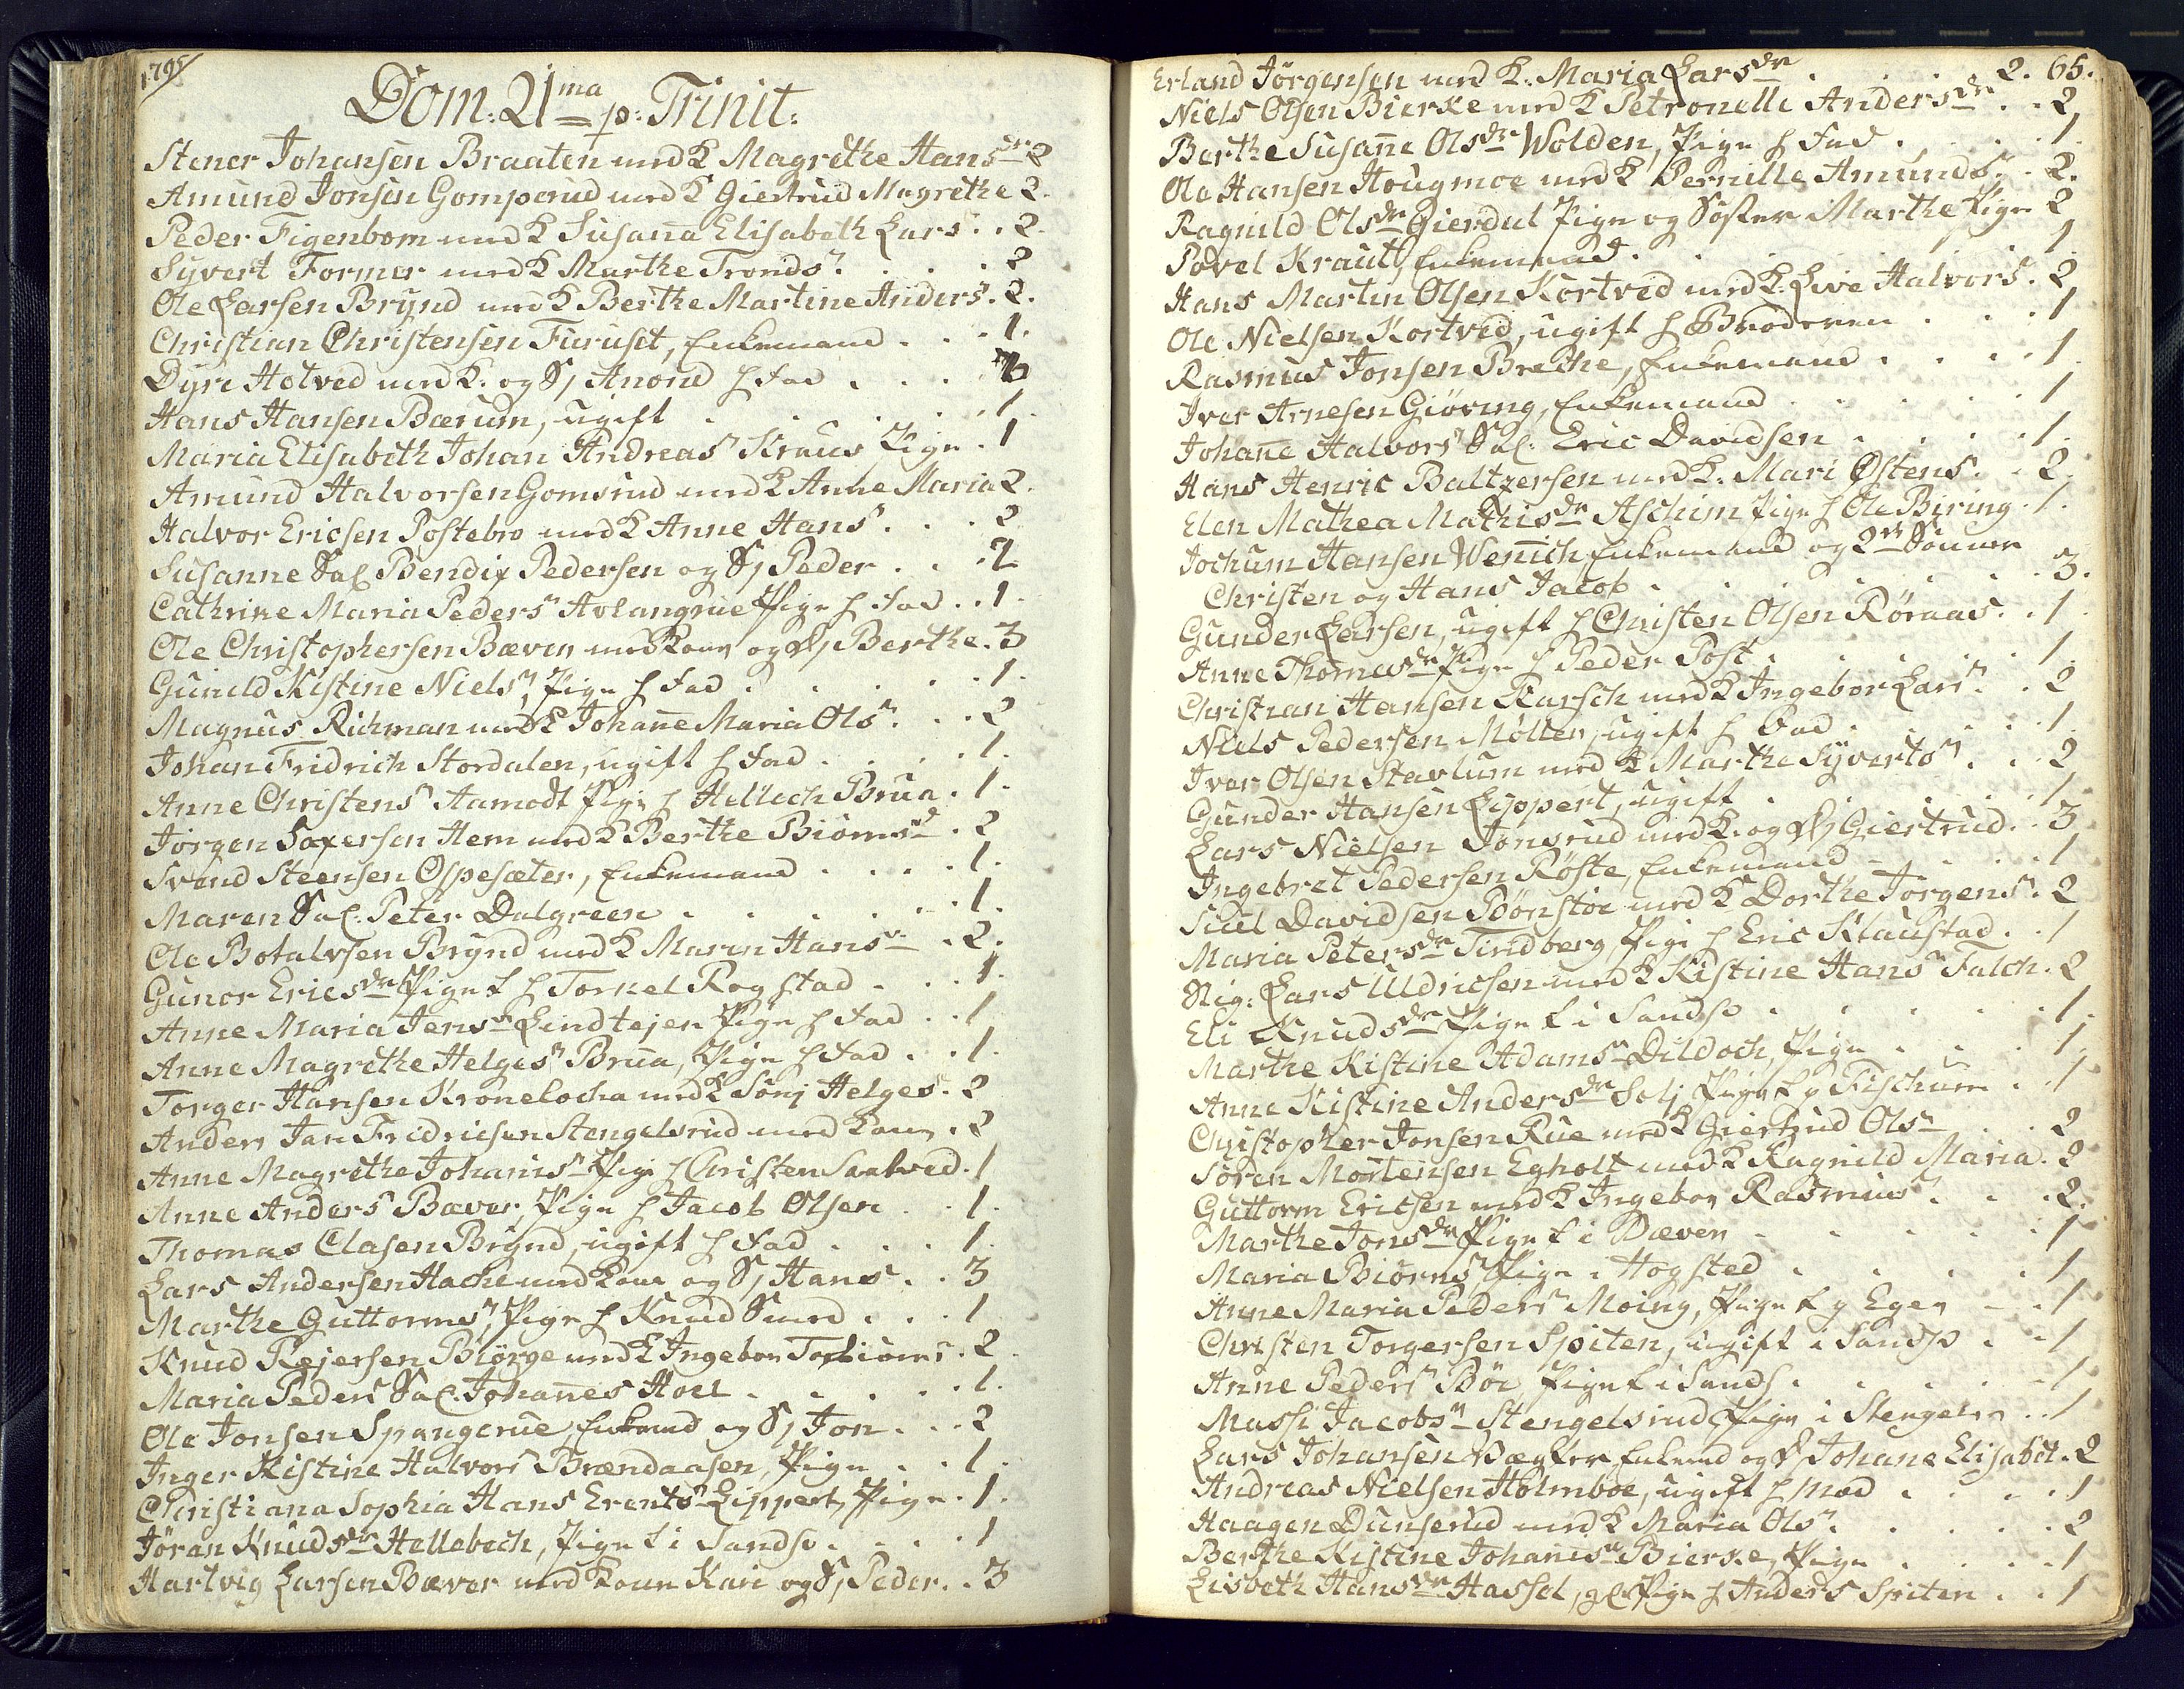 1795
Dom: 21ma p: Trinit:
Stener Johansen Braaten med K Magrethe Hansdr 2
Amund Jonsen Gomperud med K Giertrud Magrethe 2.
Peder Figenbom med K Susana Elisabeth Lars. . 2.
Syvert Former med K Marthe Tronds. . . . 2
Ole Larsen Brynd med K Berthe Martine Anders. 2.
Christian Christensen Furuset, Enkemand . . . 1.
Dyre Hotved med K. og S. Anond h Fad . . .
Hans Hansen Bærum, ugift . . . . . 1.
Maria Elisabeth Johan Andreas Kraus Pige . 1
Amund Halvorsen Gomsrud med K Anne Maria 2.
Halvor Ericsen Postebro med K Anne Hans. . . . 2
Susanne Sal Bendix Pedersen og S. Peder . . . 2
Cathrine Maria Peders Avlangrue Pige h Fad . . 1.
Ole Christophersen Bæver med Kone og D. Berthe. 3
Gunild Kistine Niels, Pige h Fad . . . . 1.
Magnus Richman med K Johane Maria Ols. . . 2
Johan Fridrich Stordalen, ugift h Fad . . . 1.
Anne Christens Aamodt Pige h Hellech Brua . 1.
Jørgen Saxersen Hem med K Berthe Biørns . 2
Svend Steensen Ospesæter, Enkemand . . . . 1.
Maren Sal. Peter Dalgreen . . . . . 1.
Ole Botalvsen Brynd med K Maren Hans . 2.
Gunor Ericsdr Pige h Torkel Rogstad . . . 1.
Anne Maria Jens Lindtejen Pige h Fad . . 1
Anne Magrethe Helges Brua, Pige h Fad . . 1.
Torger Hansen Kronelocha med K Sønj Helges. 2
Anders Jan Fridricsen Stengelsrud med Kone . 2
Anne Magrethe Johanis Pige h Christen Saatved. 1
Anne Anders Bæver, Pige h Jacob Olsen . . 1.
Thomas Clasen Brynd, ugift h Fad . . . 1.
Lars Andersen Hache med Kone og S. Hans . . 3
Marthe Guttorms, Pige h Knud Smed . . . 1
Knud Rejersen Biørge med K Ingebor Torbiørns. 2
Maria Peders Sal. Johannes Horl . . . . . 1.
Ole Jonsen Spangerue, Enkemd og S. Jon . . . 2
Inger Kistine Halvors Brændaasen, Pige . . 1.
Christiana Sophia Hans Erents Lippert, Pige . 1.
Jøran Knudsdr Hellebech, Pige i Sandsv . . . 1
Hartvig Larsen Bæver med Kone Kari og S. Peder . . 3
Erland Jørgensen med K. Maria Larsdr . . . 2. 65.
Niels Olsen Bierke med K Petronelle Andersdr . . 2
Berthe Susane Olsdr Wolden, Pige h Fad . . . . 1
Ole Hansen Hougmoe med K Pernille Amunds. . 2.
Ragnild Olsdr Gierdal Pige og Søster Marthe Pige 2
Povel Kraut, Enkemand . . . . . 1
Hans Martin Olsen Kortved med K. Live Halvors . 2
Ole Nielsen Kortved, ugift h Broderen . . . 1
Rasmus Jonsen Brethe, Enkemand . . . . 1.
Iver Arnesen Giøving, Enkemand . . . . . 1
Johane Halvors Sal. Eric Davidsen . . . . 1.
Hans Henric Baltzersen med K. Mari Østens. . 2.
Elen Mathea Mathisdr Aschim Pige h Ole Biring . 1.
Jochum Hansen Wenich Enkemand og 2de Sønner
Christen og Hans Jacob . . . . . . 3.
Gunder Larsen, ugift h Christen Olsen Røraas . . 1
Anne Thomasdr Pige h Peder Post . . . . 1.
Christian Hansen Rarsch med K Ingebor Lars. . 2
Niels Pedersen Møller, ugift h Fad . . . . 1.
Iver Olsen Stavlum med K Marthe Syverts. . . 2
Gunder Hansen Lippert, ugift . . . . . 1.
Lars Nielsen Jonsrud med K. og D. Giertrud. . 3
Ingebret Pedersen Røste, Enkemand . . . . 1
Siul Davidsen Bønstøe med K Dorthe Jørgens. 2
Maria Petersdr Tindberg, Pige h Eric Klaustad . . 1
Sig: Lars Uldricsen med K Kistine Hans Falch . 2
Eli Knudsdr Pige i Sandsv . . . . . 1.
Marthe Kistine Adams Dildoch, Pige . . . . 1
Anne Kistine Andersdr Solj Pige Fischum . . 1
Christopher Jonsen Rue med K Giertrud Ols . . . 2
Søren Mortensen Egholt med K Ragnild Maria . 2
Guttorm Ericsen med K Ingebor Rasmus. . . . 2.
Marthe Jonsdr Pige i Bæver . . . . . 1
Maria Biørns Pige i Hogsted . . . . 1
Anne Maria Peders Moing, Pige Eger . . 1
Christen Torgersen Spiten, ugift i Sandsv . . 1
Anne Peders Bøe Pige i Sands . . . . . 1
Massi Jacobs Stengelsrud Pige i Stengels . . 1
Lars Johansen Vægter Enkemd og D. Johane Elisabet . 2
Andreas Nielsen Holmboe, ugift h Mod . . . . 1
Haagen Dunserud med K Maria Ols. . . . . 2
Berthe Kistine Johanis Bierke, Pige . . . . 1
Lisbeth Hansdr Hassel, gl Pige h Anders Spiten . . 1